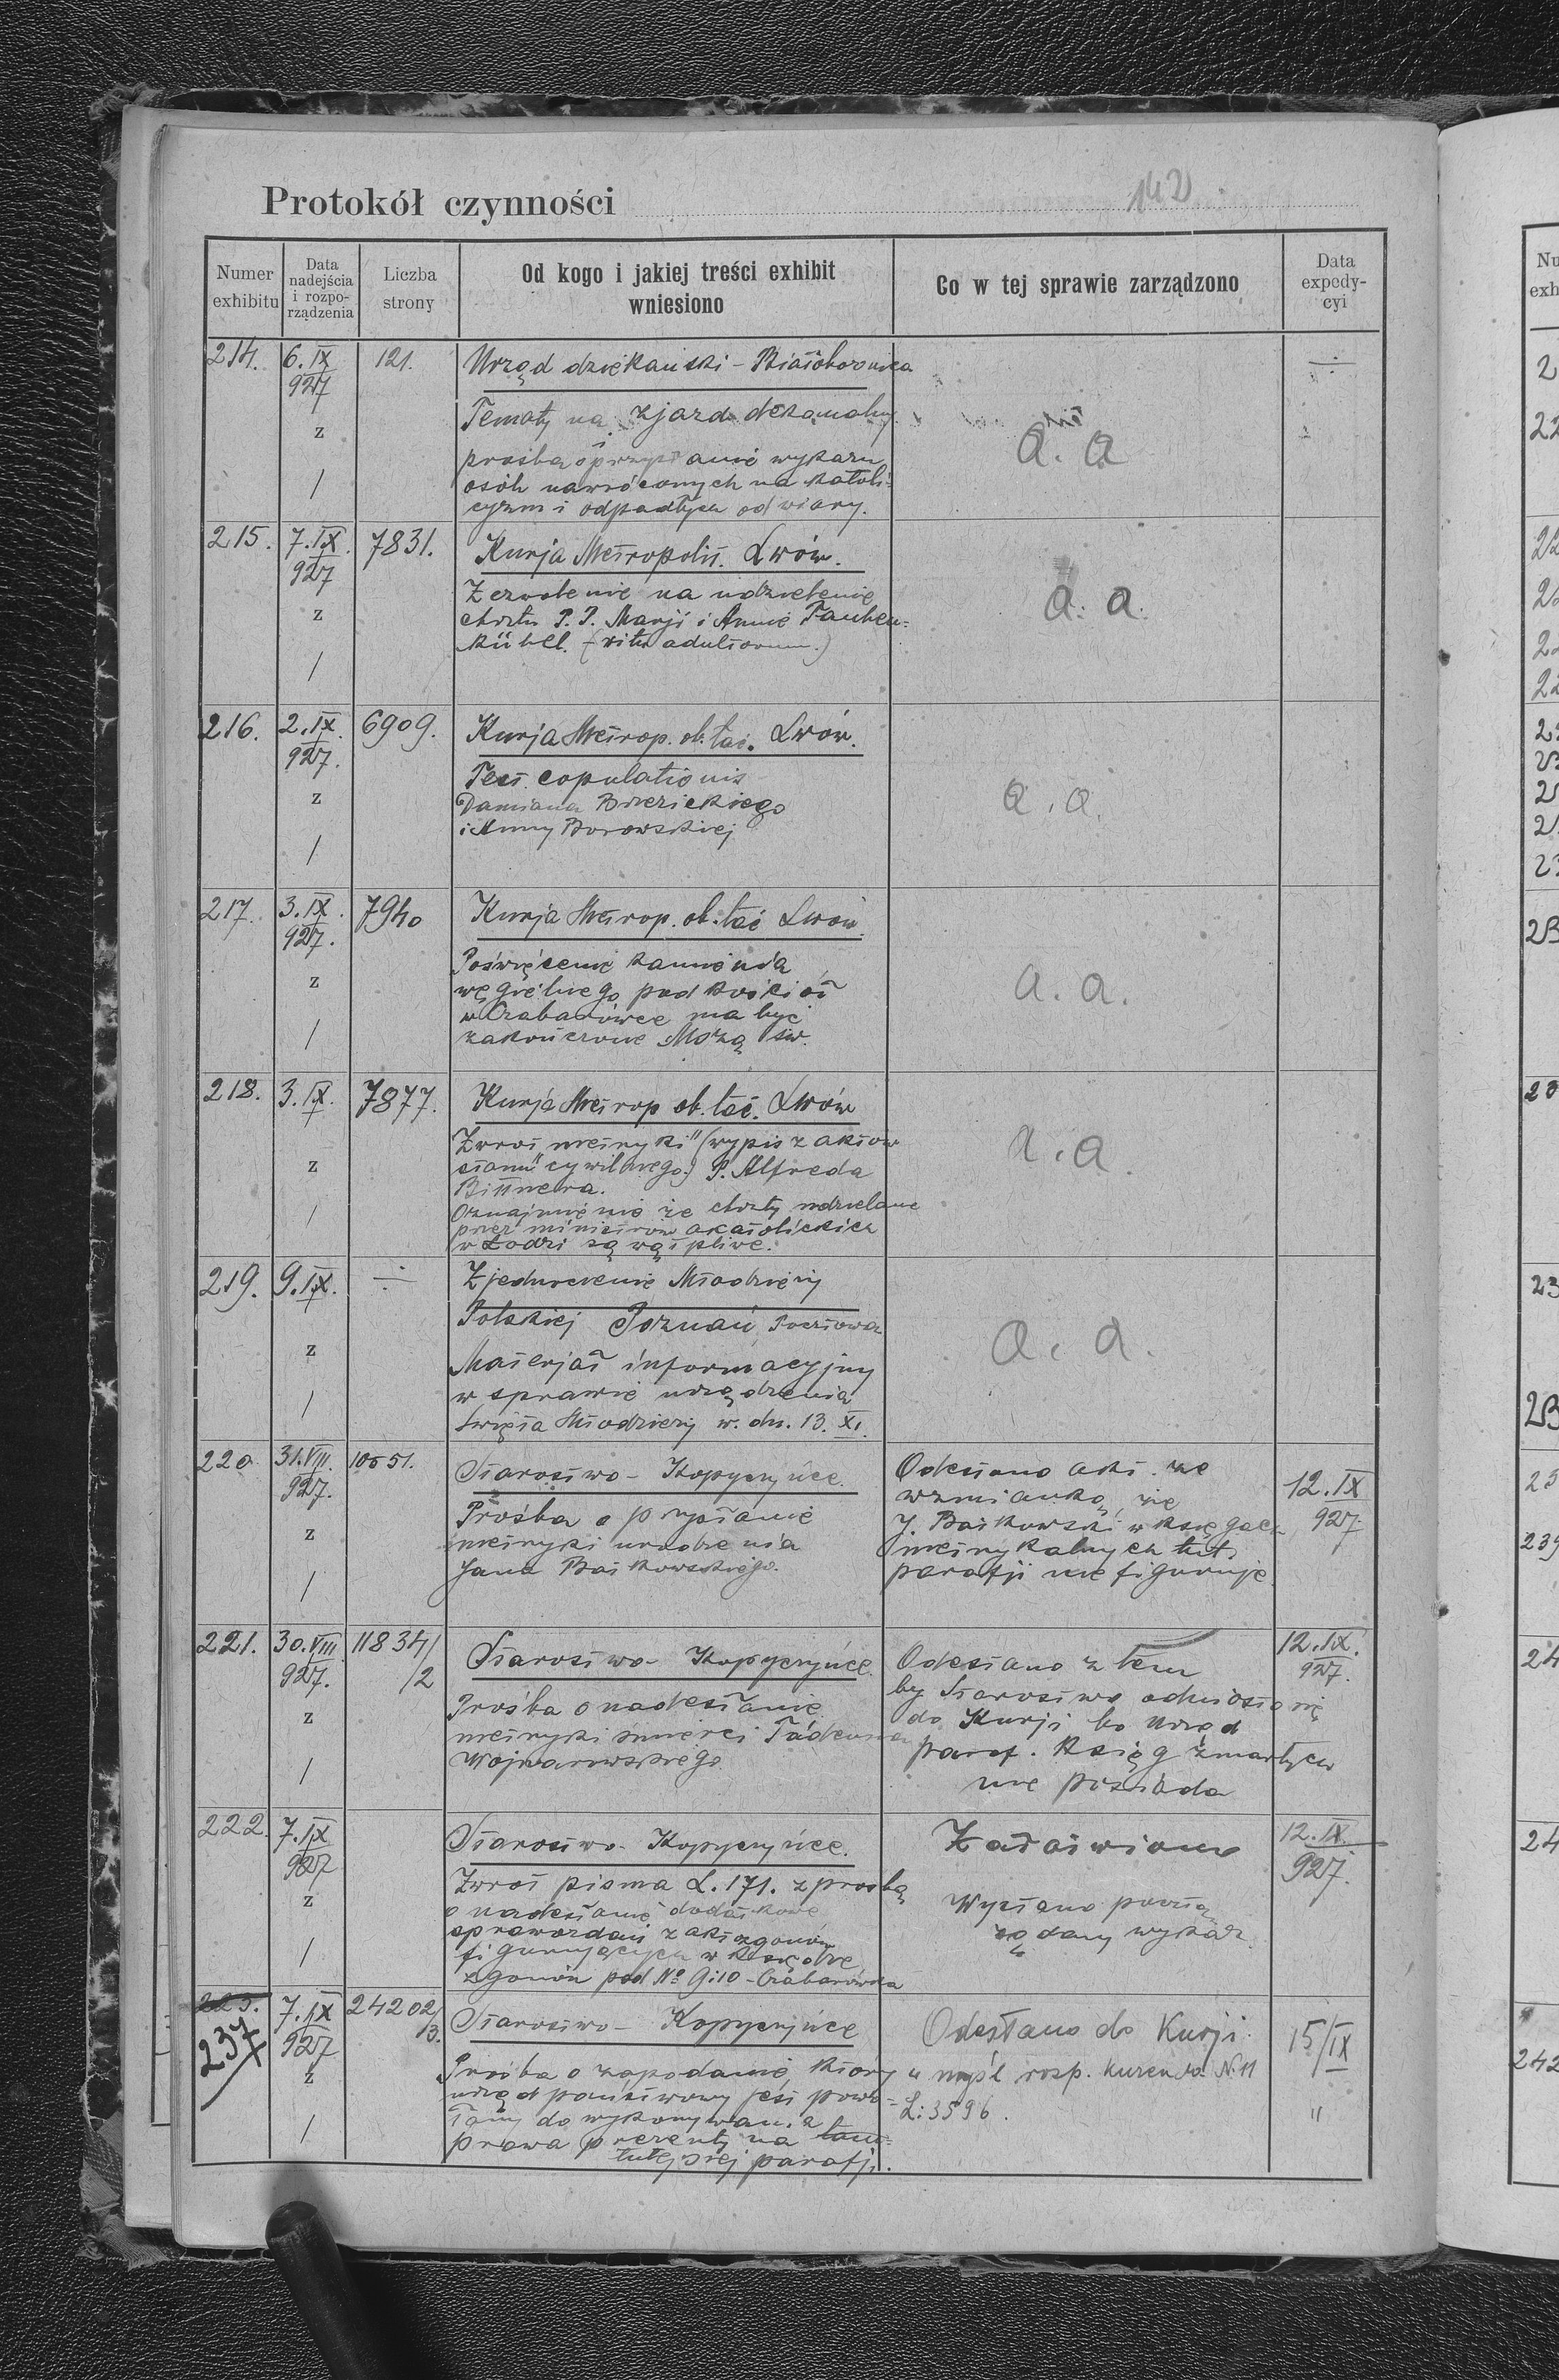 142
Protokół czynności
Numer exhibitu
Data nadejścia i rozporządzenia
Liczba strony
Od kogo i jakiej treści exhibit wniesiono
Co w tej sprawie zarządzono
Data expedycyi
214. 6.IX 927 z / 121.
Urząd dziekański - Białobożnica
Tematy na zjazd dekanalny
prośba o przysłanie wykazu
osób nawróconych na katoli-
cyzm i odpadłych od wiary.
a. a
215. 7.IX. 927 z / 7831.
Kurja Metropolit. Lwów.
Zezwolenie na udzielenie
chrztu P. P. Marji i Annie Tauben-
kübel. (ritu adultorum.)
a. a.
216. 2.IX. 927. z / 6909.
Kurja Metrop. ob. łać. Lwów.
Test. copulationis
Damiana Brzezickiego
i Anny Borowskiej
a. a.
217. 3.IX. 927. z / 7940
Kurja Metrop. ob. łać Lwów.
Poświęcenie kamienia
węgielnego pod kościół
w Czabarówce ma być
zakończone Mszą św.
a. a.
218. 3.IX. z / 7877.
Kurja Metrop ob. łać. Lwów
Zwrot metryki "(wypis z aktów
stanu" cywilnego) P. Alfreda
Bittnera.
Oznajmienie że chrzty udzielane
przez ministrów akatolickich
w Łodzi są wątpliwe.
a. a.
219. 9.IX. z / ÷
Zjednoczenie Młodzieży
Polskiej Poznań Pocztowa
Materjał informacyjny
w sprawie urządzenia
Święta Młodzieży w. dn. 13. XI.
a. a.
220 31.VIII. 927. z / 10551.
Starostwo - Kopyczyńce.
Prośba o przysłanie
metryki urodzenia
Jana Bańkowskiego.
Odesłano akt. ze
wzmianką, że
J. Bańkowski w księgach
metrykalnych tut.
parafji nie figuruje.
12.IX 927.
221. 30.VIII 927. z / 11834/2
Starostwo - Kopyczyńce.
Prośba o nadesłanie
metryki śmierci Tadeusza
Wojnarowskiego.
Odesłano z tem
by Starostwo odniosło się
do Kurji bo Urząd
paraf. Ksiąg zmarłych
nie posiada
12.IX. 927.
222. 7.IX 927 z /
Starostwo - Kopyczyńce.
Zwrot pisma L. 171. z prośbą
o nadesłanie dodatkowe
sprawozdań z akt zgonów
figurujących w księdze
zgonów pod № 9 i 10 - Czabarówka
Załatwiono
Wysłano pocztą
żądany wykaz.
12.IX. 927.
223. 237 7.IX 927 z / 24202/3.
Starostwo - Kopyczyńce
Prośba o zapodanie, który
urząd państwowy jest powo-
łany do wykonywania
prawa prezenty na tam-
tutejszej parafji.
Odesłano do Kurji
w myśl rosp. Kurenda N. 11
L: 3596.
15/IX
"